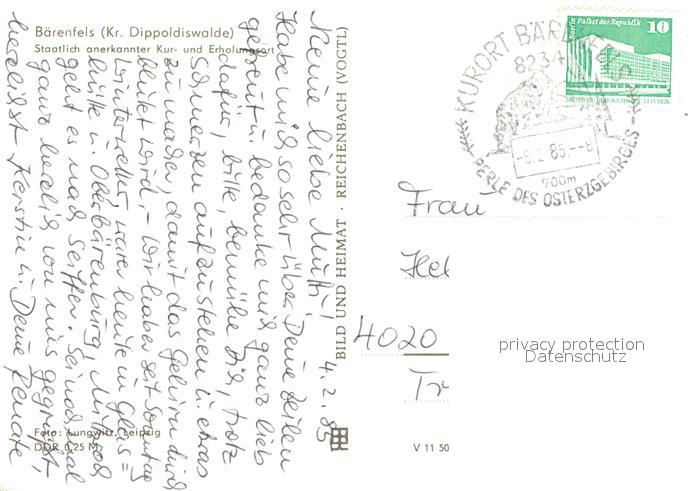 Bärenfels (Kr. Dippoldiswalde)
Staatlich anerkannter Kur- und Erholungsort
Meine liebe Mutti! 4.2.85
Habe mich so sehr über Deine Zeilen
gefreut u. bedanke mich ganz lieb
dafür, bitte, bemühe Dich, trotz
Schmerzen aufzustehen u. etwas
zu machen, damit das Gehirn durch
blutet wird. - Wir haben seit Sonntag
Winterwetter, waren heute in Glas=
hütte u. Oberbärenburg, Mittwoch
geht es nach Seiffen. Sei nochmal
ganz herzlich von uns gegrüßt,
herzlichst Kerstin u. Deine Renate
Foto: Lungwitz, Leipzig
DDR 0,25 M
BILD UND HEIMAT · REICHENBACH (VOGTL)
V 11 50
KURORT BÄRENFELS
8234
-6.2.85.--8
700m
PERLE DES OSTERZGEBIRGES
Berlin Palast der Republik
10
DEUTSCHE DEMOKRATISCHE REPUBLIK
Frau
Hel
4020
Tr
privacy protection
Datenschutz